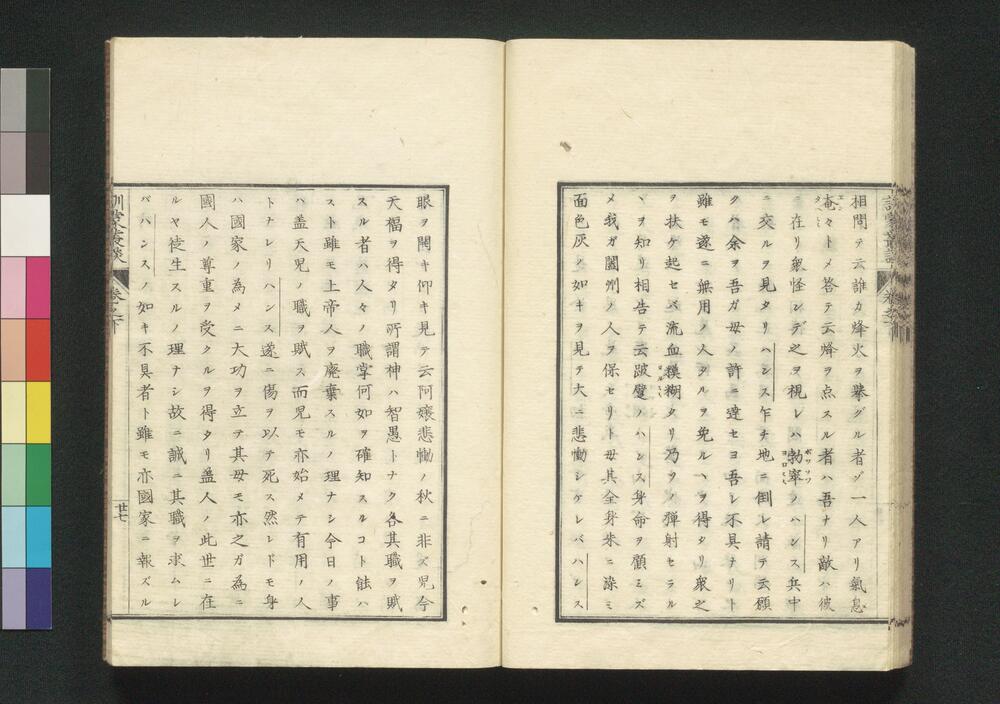 相問テ云誰カ烽火ヲ擧グル者ゾ一人アリ氣息
奄々トメ答テ云烽ヲ点スル者ハ吾ナリ敵ハ彼
ニ在リ衆怪ンデ之ヲ視レハ勃窣ノハンス兵中
ニ交ルヲ見タリハンス乍チ地ニ倒レ請テ云願
クハ余ヲ吾ガ母ノ許ニ達セヨ吾レ不具ナリト
雖モ遂ニ無用ノ人タルヲ免ルヽヲ得タリ衆之
ヲ扶ケ起セバ流血糢糊タリ乃ヲノ弾射セラル
ヽヲ知リ相告テ云跛躄ノハンス身命ヲ顧ミズ
メ我ガ闔州ノ人ヲ保セリト母其全身朱ニ染ミ
面色灰ノ如キヲ見テ大ニ悲慟シケレバハンス
眼ヲ開キ仰キ見テ云阿孃悲慟ノ秋ニ非ズ児今
天福ヲ得タリ所謂神ハ智愚トナク各其職ヲ賦
スル者ハ人々ノ職掌何如ヲ確知スルコト能ハ
スト雖モ上帝人ヲ廃棄スルノ理ナシ今日ノ事
ハ盖天児ノ職ヲ賦ス而児モ亦始メテ有用ノ人
トナレリハンス遂ニ傷ヲ以テ死ス然レドモ身
ハ國家ノ為メニ大功ヲ立テ其母モ亦之ガ為ニ
國人ノ尊重ヲ受クルヲ得タリ盖人ノ此世ニ在
ルヤ徒生スルノ理ナシ故ニ誠ニ其職ヲ求ムレ
バハンスノ如キ不具者ト雖モ亦國家ニ報ズル
卷之下
廿七